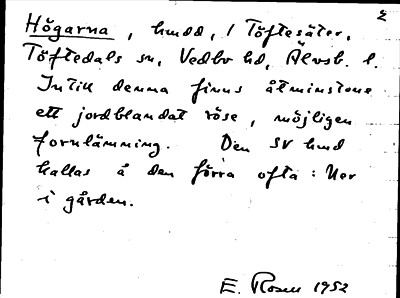 2
Högarna, hmdd, i Töftesäter,
Töftedals sn, Vedbo hd, Älvsb. l.
Intill denna finns åtminstone
ett jordblandat röse, möjligen
fornlämning. Den SV hmd
kallas å den förra ofta: Ner
i gården.
E. Rosell 1952